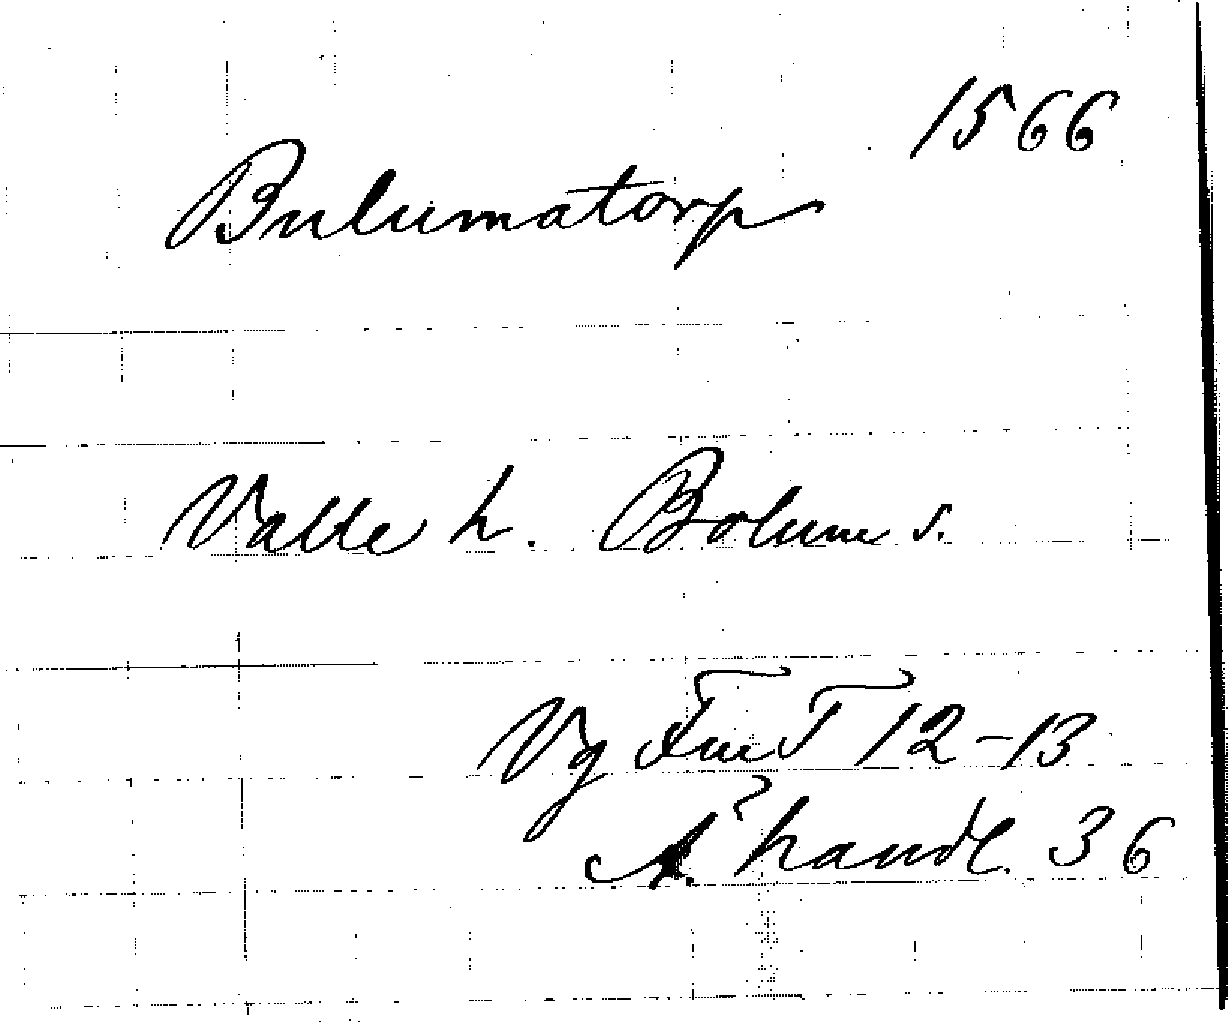 1566
Bulumatorp
Valle h. Bolum s.
Vg FmT I 2-13
handl. 36